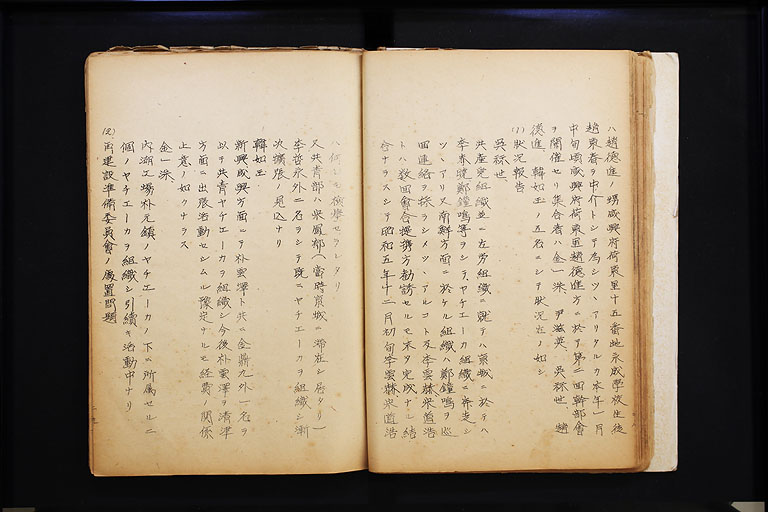 ハ趙德進ノ甥咸興府荷東里十五番地永成學校生徒
趙東春ヲ中介トシテ為シツヽアリタルカ本年一月
中旬頃咸興府荷東里趙德進方ニ於テ第二回幹部會
ヲ開催セリ集合者ハ金一洙、尹滋英、吳祘世、趙
德進、韓如玉ノ五名ニシテ狀況左ノ如シ
(1)狀況報告
吳祘世、
共產党組織並ニ左労組織ニ就テハ京城ニ於テハ
李春逑鄭鐘鳴等ヲシテヤチエーカ組織ニ奔走シ
ツヽアリ又南鮮方面ニ於ケル組織ハ鄭鐘鳴ヲ巡
回連絡ヲ採ラシメツヽアルコト及李雲赫宋道浩
トハ数回會合提携方勧誘セルモ未タ完成ナル結
合ナラスシテ昭和五年十二月初旬李雲赫宋道浩
ハ何レモ檢擧セラレタリ
又共青部ハ吳鳳郁(當時京城ニ滞在シ居タリ)
李啓永外二名ヲシテ既ニヤチエーカヲ組織シ漸
次擴張ノ見込ナリ
韓如玉
新興咸興方面ニテ朴雲澤ト共ニ金鼎九外一名ヲ
以テ共青ヤチエーカヲ組織シ今後朴雲澤ヲ清津
方面ニ出張活動セシムル豫定ナルモ経費ノ関係
上意ノ如クナラス
金一洙、
內湖工場朴元鎮ノヤチエーカノ下ニ所属セル二
個ノヤチエーカヲ組織シ引續キ活動中ナリ
(2)再建設準備委員會ノ處置問題